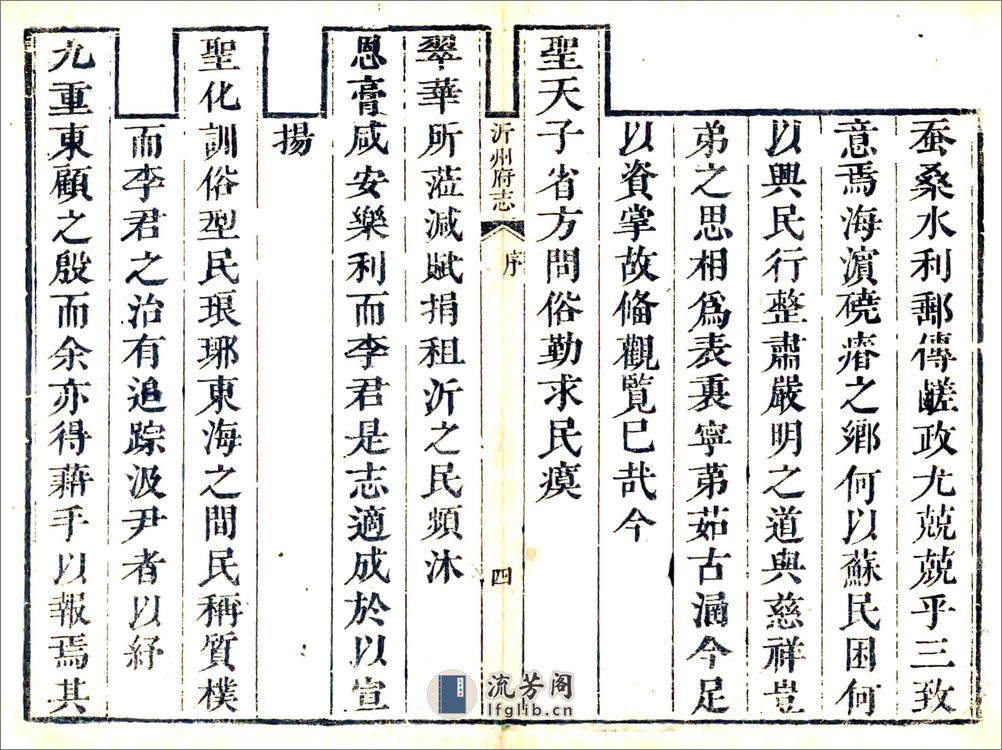 蚕桑水利郵傳鹺政尤兢兢乎三致
意焉海濵磽瘠之鄉何以蘇民困何
以興民行整肅嚴明之道與慈祥豈
弟之思相為表裏寧第茹古涵今足
以資掌故俻觀覽已哉今
聖天子省方問俗勤求民瘼
沂州府志 序 四
翠華所蒞減賦捐租沂之民頻沐
恩膏咸安樂利而李君是志適成於以宣
揚
聖化訓俗型民琅琊東海之間民稱質樸
而李君之治有追踪汲尹者以紓
九重東顧之殷而余亦得藉手以報焉其
流芳阁
lfglib.cn